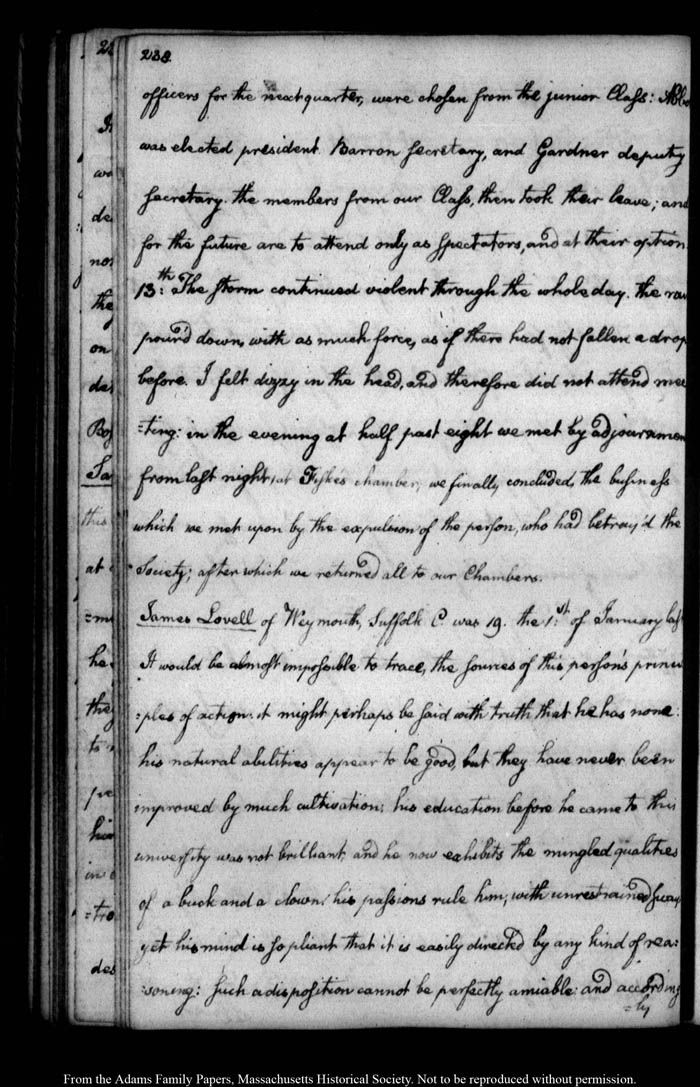 238.
officers for the next quarter, were chosen from the junior Class: Abbo
was elected president Barron secretary, and Gardner deputy
secretary. the members from our Class, then took their leave; and
for the future are to attend only as spectators, and at their option.
13th: The storm continued violent through the whole day. the rain
pour'd down, with as much force, as if there had not fallen a drop
before. I felt dizzy in the head, and therefore did not attend mee
=ting: in the evening at half past eight we met by adjournmen
from last night, at Fiske's chamber; we finally concluded, the business
which we met upon by the expulsion of the person, who had betray'd the
Society; after which we returned all to our Chambers.
James Lovell of Weymouth, Suffolk C. was 19. the 1st: of January last
It would be almost impossible to trace, the sources of this person's princi
=ples of action. it might perhaps be said with truth that he has none:
his natural abilities appear to be good, but they have never been
improved by much cultivation; his education before he came to this
university was not brilliant, and he now exhibits the mingled qualities
of a buck and a clown: his passions rule him, with unrestrained sway
yet his mind is so pliant that it is easily directed by any kind of rea=
=soning: such a disposition cannot be perfectly amiable: and according
=ly
From the Adams Family Papers, Massachusetts Historical Society. Not to be reproduced without permission.